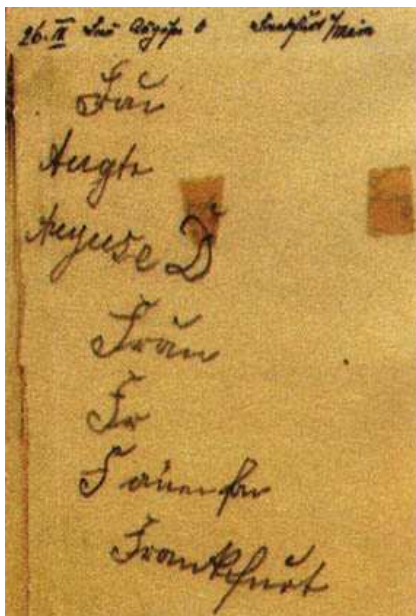 26. IX Frau Auguste D Frankfurt /Main
Fau
Augte
Auguse D
Fräu
Fr
Frankfurt